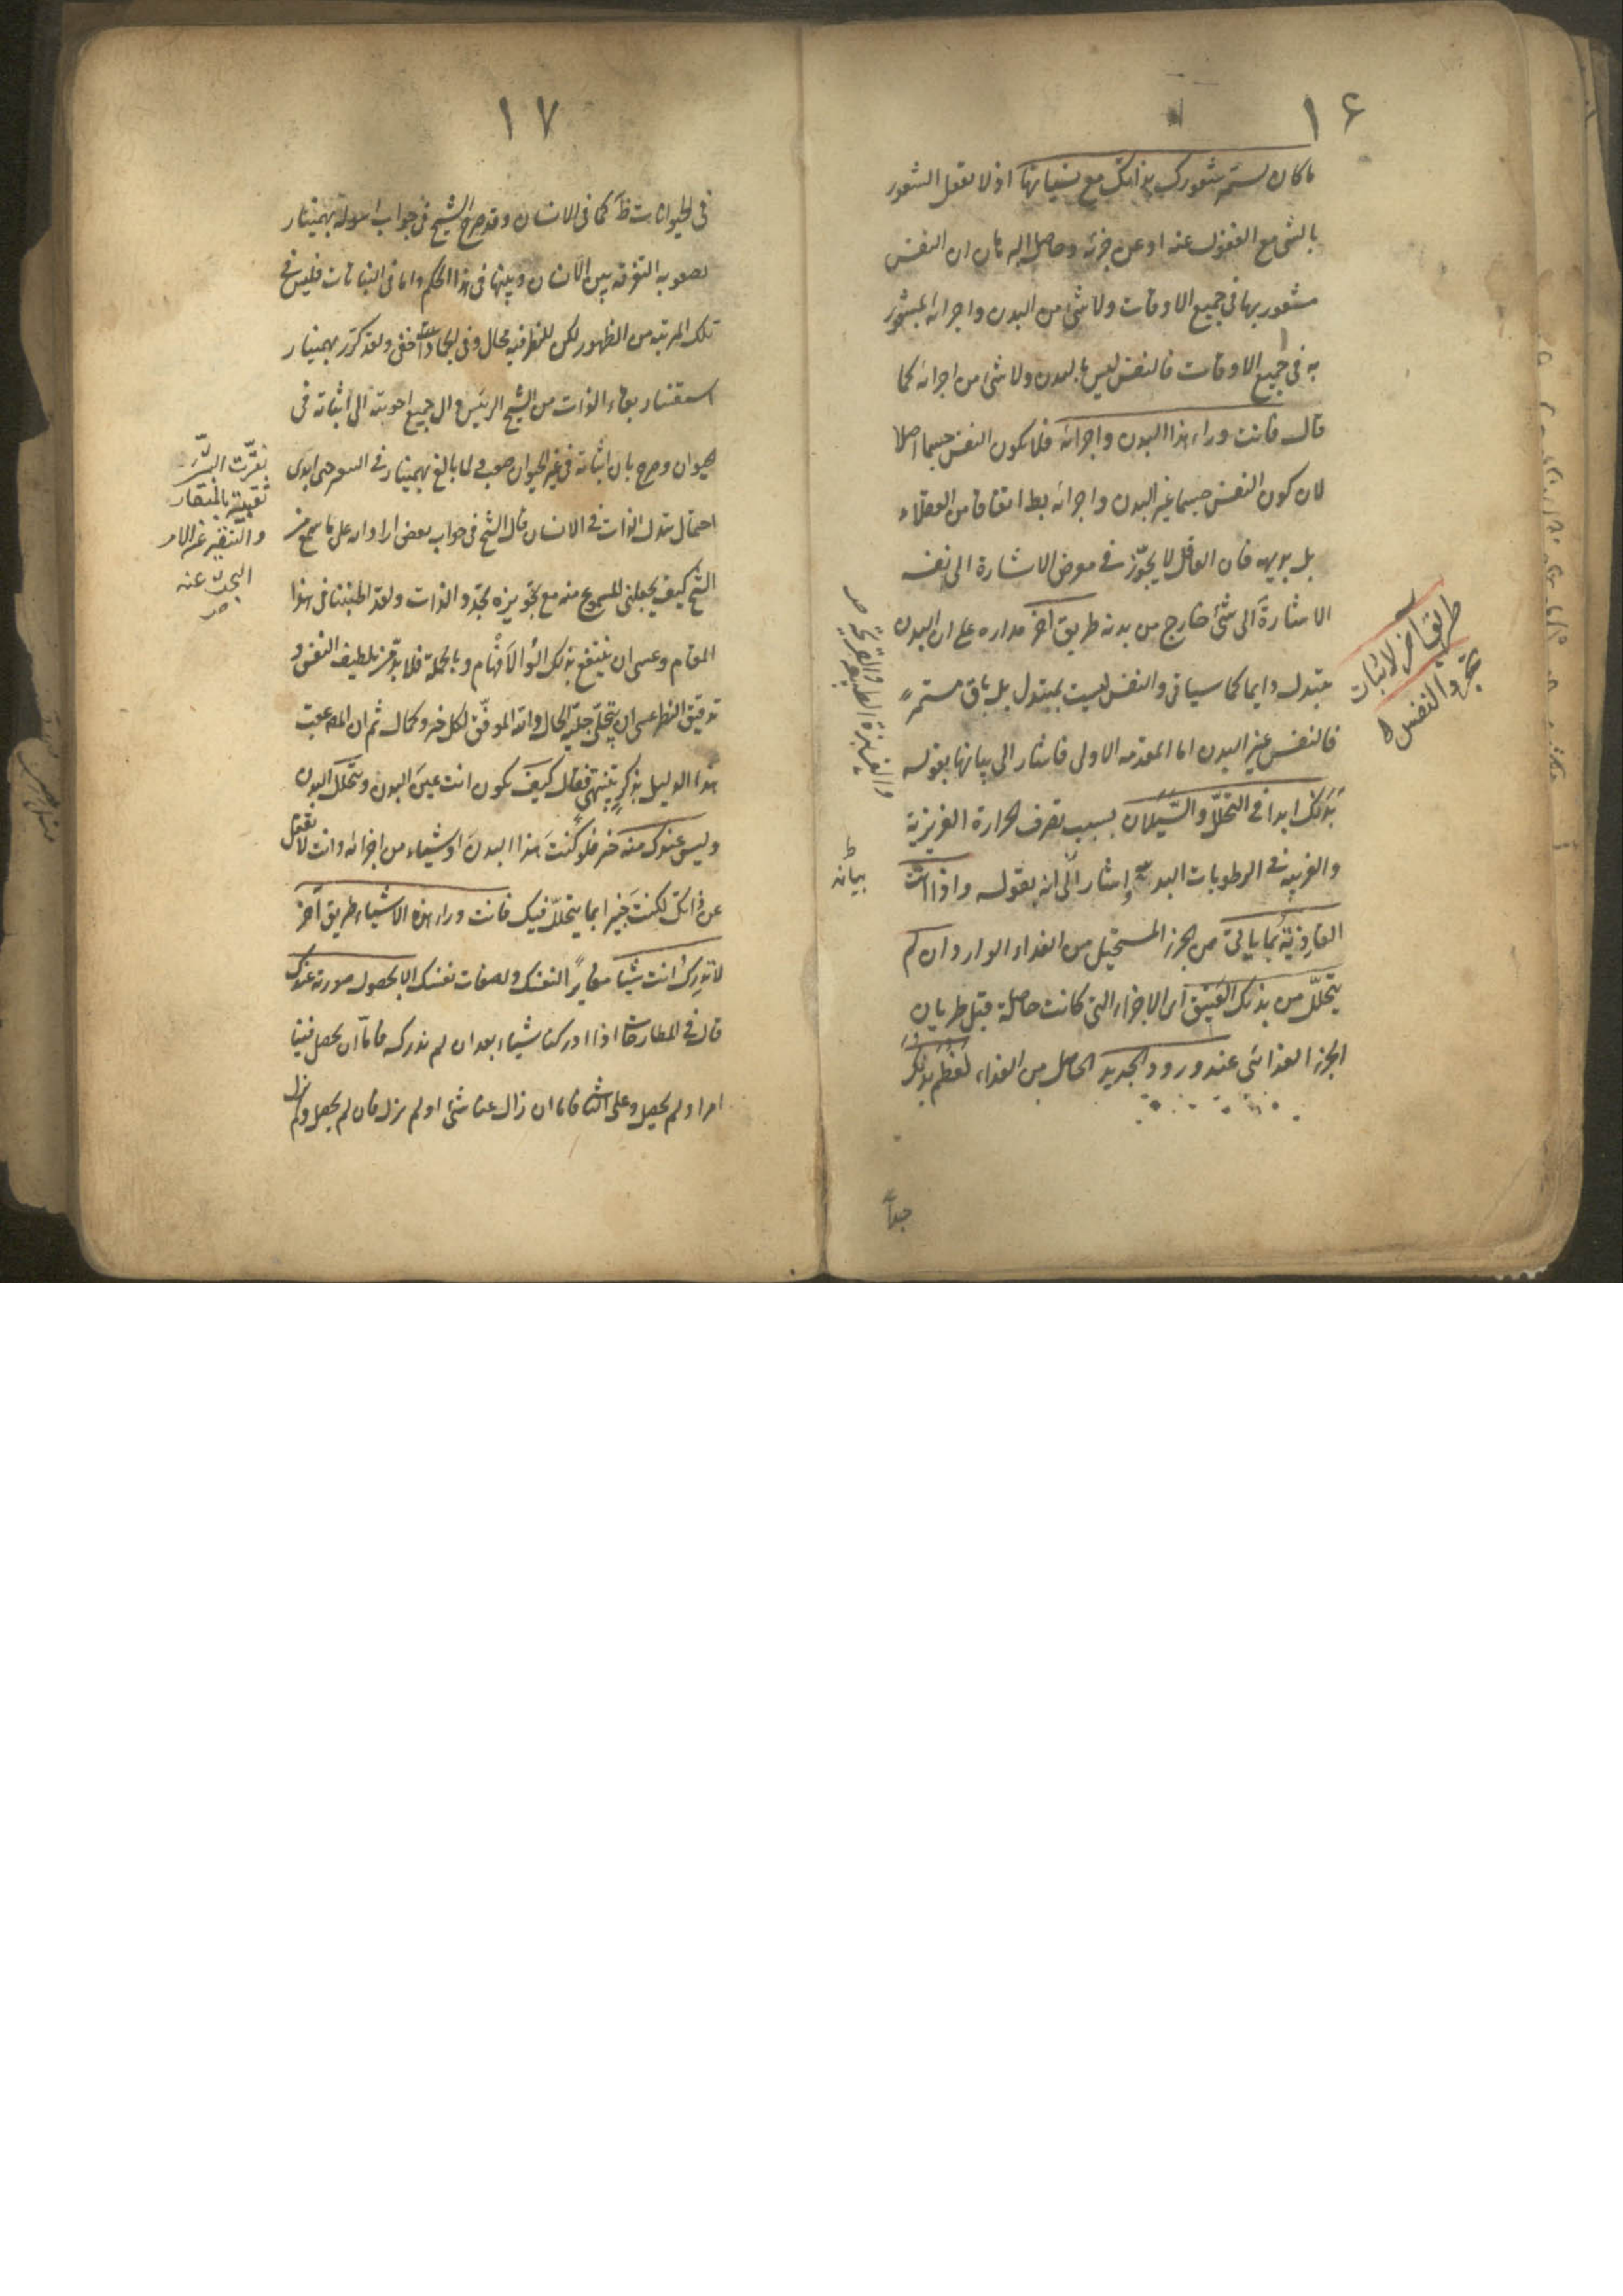 ١٦
ما كان يستمر شعورك بذاتك مع نسيانها اذ لا يعقل الشعور
بالشئ مع الغفول عنه او عن جزئه وحاصل البرهان ان النفس
مشعور بها فى جميع الاوقات ولا شئ من البدن واجزائه بمشعور
به فى جميع الاوقات فالنفس ليس بالبدن ولا شئ من اجزائه كما
قال فانت وراء هذا البدن واجزائه فلا يكون النفس جسما اصلا
لان كون النفس جسما غير البدن واجزائه بط اتفاقا من العقلاء
بل بديهة فان العاقل لا يجوّز فى معرض الاشارة الى نفسه
الاشارة الى شئ خارج من بدنه طريق آخر مداره على ان البدن
متبدل دايما كما سياتى والنفس ليست بمتبدل بل باق مستمر
فالنفس غير البدن اما المقدمه الاولى فاشار الى بيانها بقوله
بَدَنك ابدا فى التحلّل والسَّيَلان بسبب تصرف الحرارة الغريزية
والغريبه فى الرطوبات البدنية واشار الى انه بقوله واذا اتت
الغاذية بما ياتى من الجزء المستحيل من الغذاء الوارد ان لم
يتحلّل من بدنك العتيق اى الاجزاء التى كانت حاصلة قبل طريان
الجزء الغذائى عند ورود الجديد الحاصل من الغذاء لعظم بدنك
طريق آخر لاثبات
تجرد النفس
بيانه
جداً
١٧
فى الحيوانات ظ كما فى الانسان وقد صرح الشيخ فى جواب اسولة بهمنيار
بصعوبة التفرقه بين الانسان وبينها فى هذا الحكم واما فى النباتات فليس فى
تلك المرتبه من الظهور لكن للنظر فيه مجال وفى الجمادات اخفى ولقد كرّر بهمنيار
استفسار بقاء الذات من الشيخ الرئيس وال جميع اجوبته الى اثباته فى
الحيوان وصرح بان اثباته فى غير الحيوان صعب ولما بالغ بهمنيار فى السوال حتى ابدى
احتمال تبدل الذات فى الانسان قال الشيخ فى جواب بعض
الشيخ كيف يجعلنى المسموع منه مع تجويزه تجدد الذات ولقد اطنبنا فى هذا
المقام وعسى ان ينتفع بذلك الافهام وبالجملة فلا بد من تلطيف النفس و
تدقيق النظر عسى ان يتجلّى جليّة الحال والله الموفّق لكل خير وكمال ثم ان المص عقب
هذا الدليل بذكر تنبيهى فقال كيف يكون انت عين البدن ويتحلل البدن
وليس عندك منه خبر فلو كنتَ هذا البدن او شيئا من اجزائه وانت لا تغفل
عن ذاتك لكنت خبيرا بما يتحلّل فيك فانت وراء هذه الاشياء طريق آخر
لا تدرك انت شيئا مغايرا لنفسك ولصفات نفسك الا بحصول صورته عندك
قال فى المطارحات اذا ادركنا شيئا بعد ان لم ندركه فامّا ان يحصل فينا
امر او لم يحصل وعلى الثانى فاما ان زال عنا شئ او لم يزل فان لم يحصل ولم يزل
بالمنقار
والتنقير عن الامر
البحث عنه